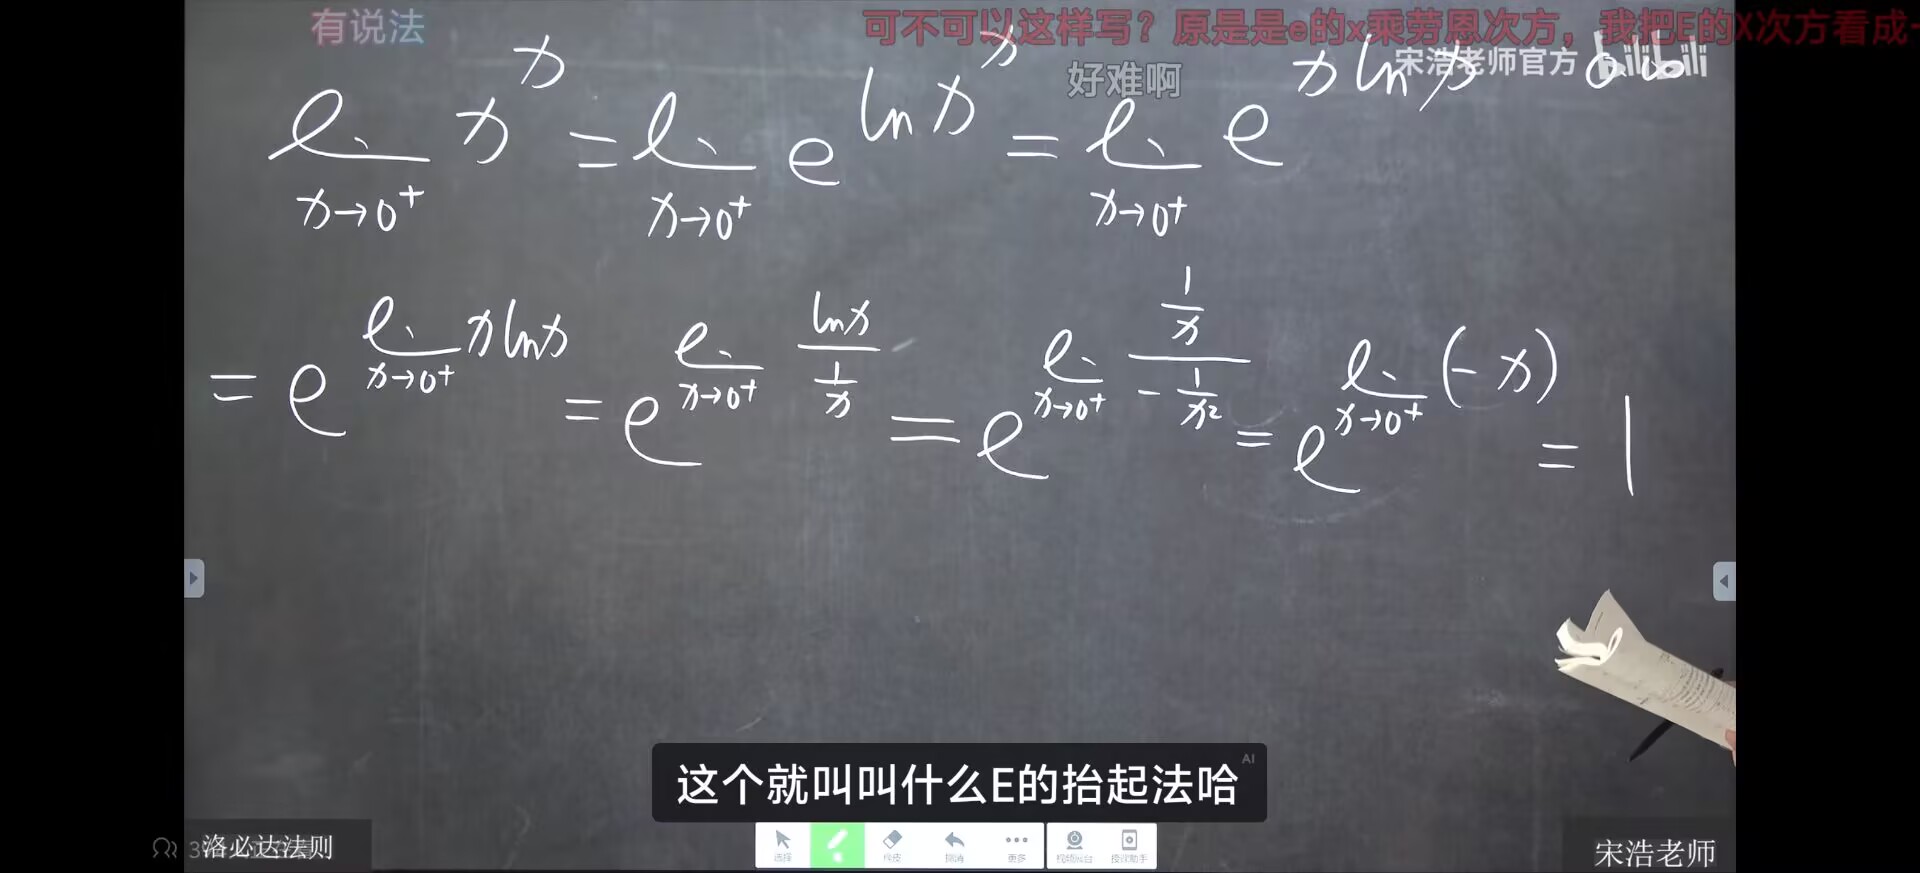 有说法
可不可以这样写？原是是e的x乘劳恩次方，我把E的X次方看成
好难啊
宋浩老师官方 bilibili
lim x→0⁺ x^x = lim x→0⁺ e^(ln x^x) = lim x→0⁺ e^(x ln x)
= e^(lim x→0⁺ x ln x) = e^(lim x→0⁺ (ln x)/(1/x)) = e^(lim x→0⁺ (1/x)/(-1/x²)) = e^(lim x→0⁺ (-x)) = 1
这个就叫叫什么E的抬起法哈
AI
选择 橡皮 撤消 更多 视频展台 授课助手
洛必达法则
宋浩老师